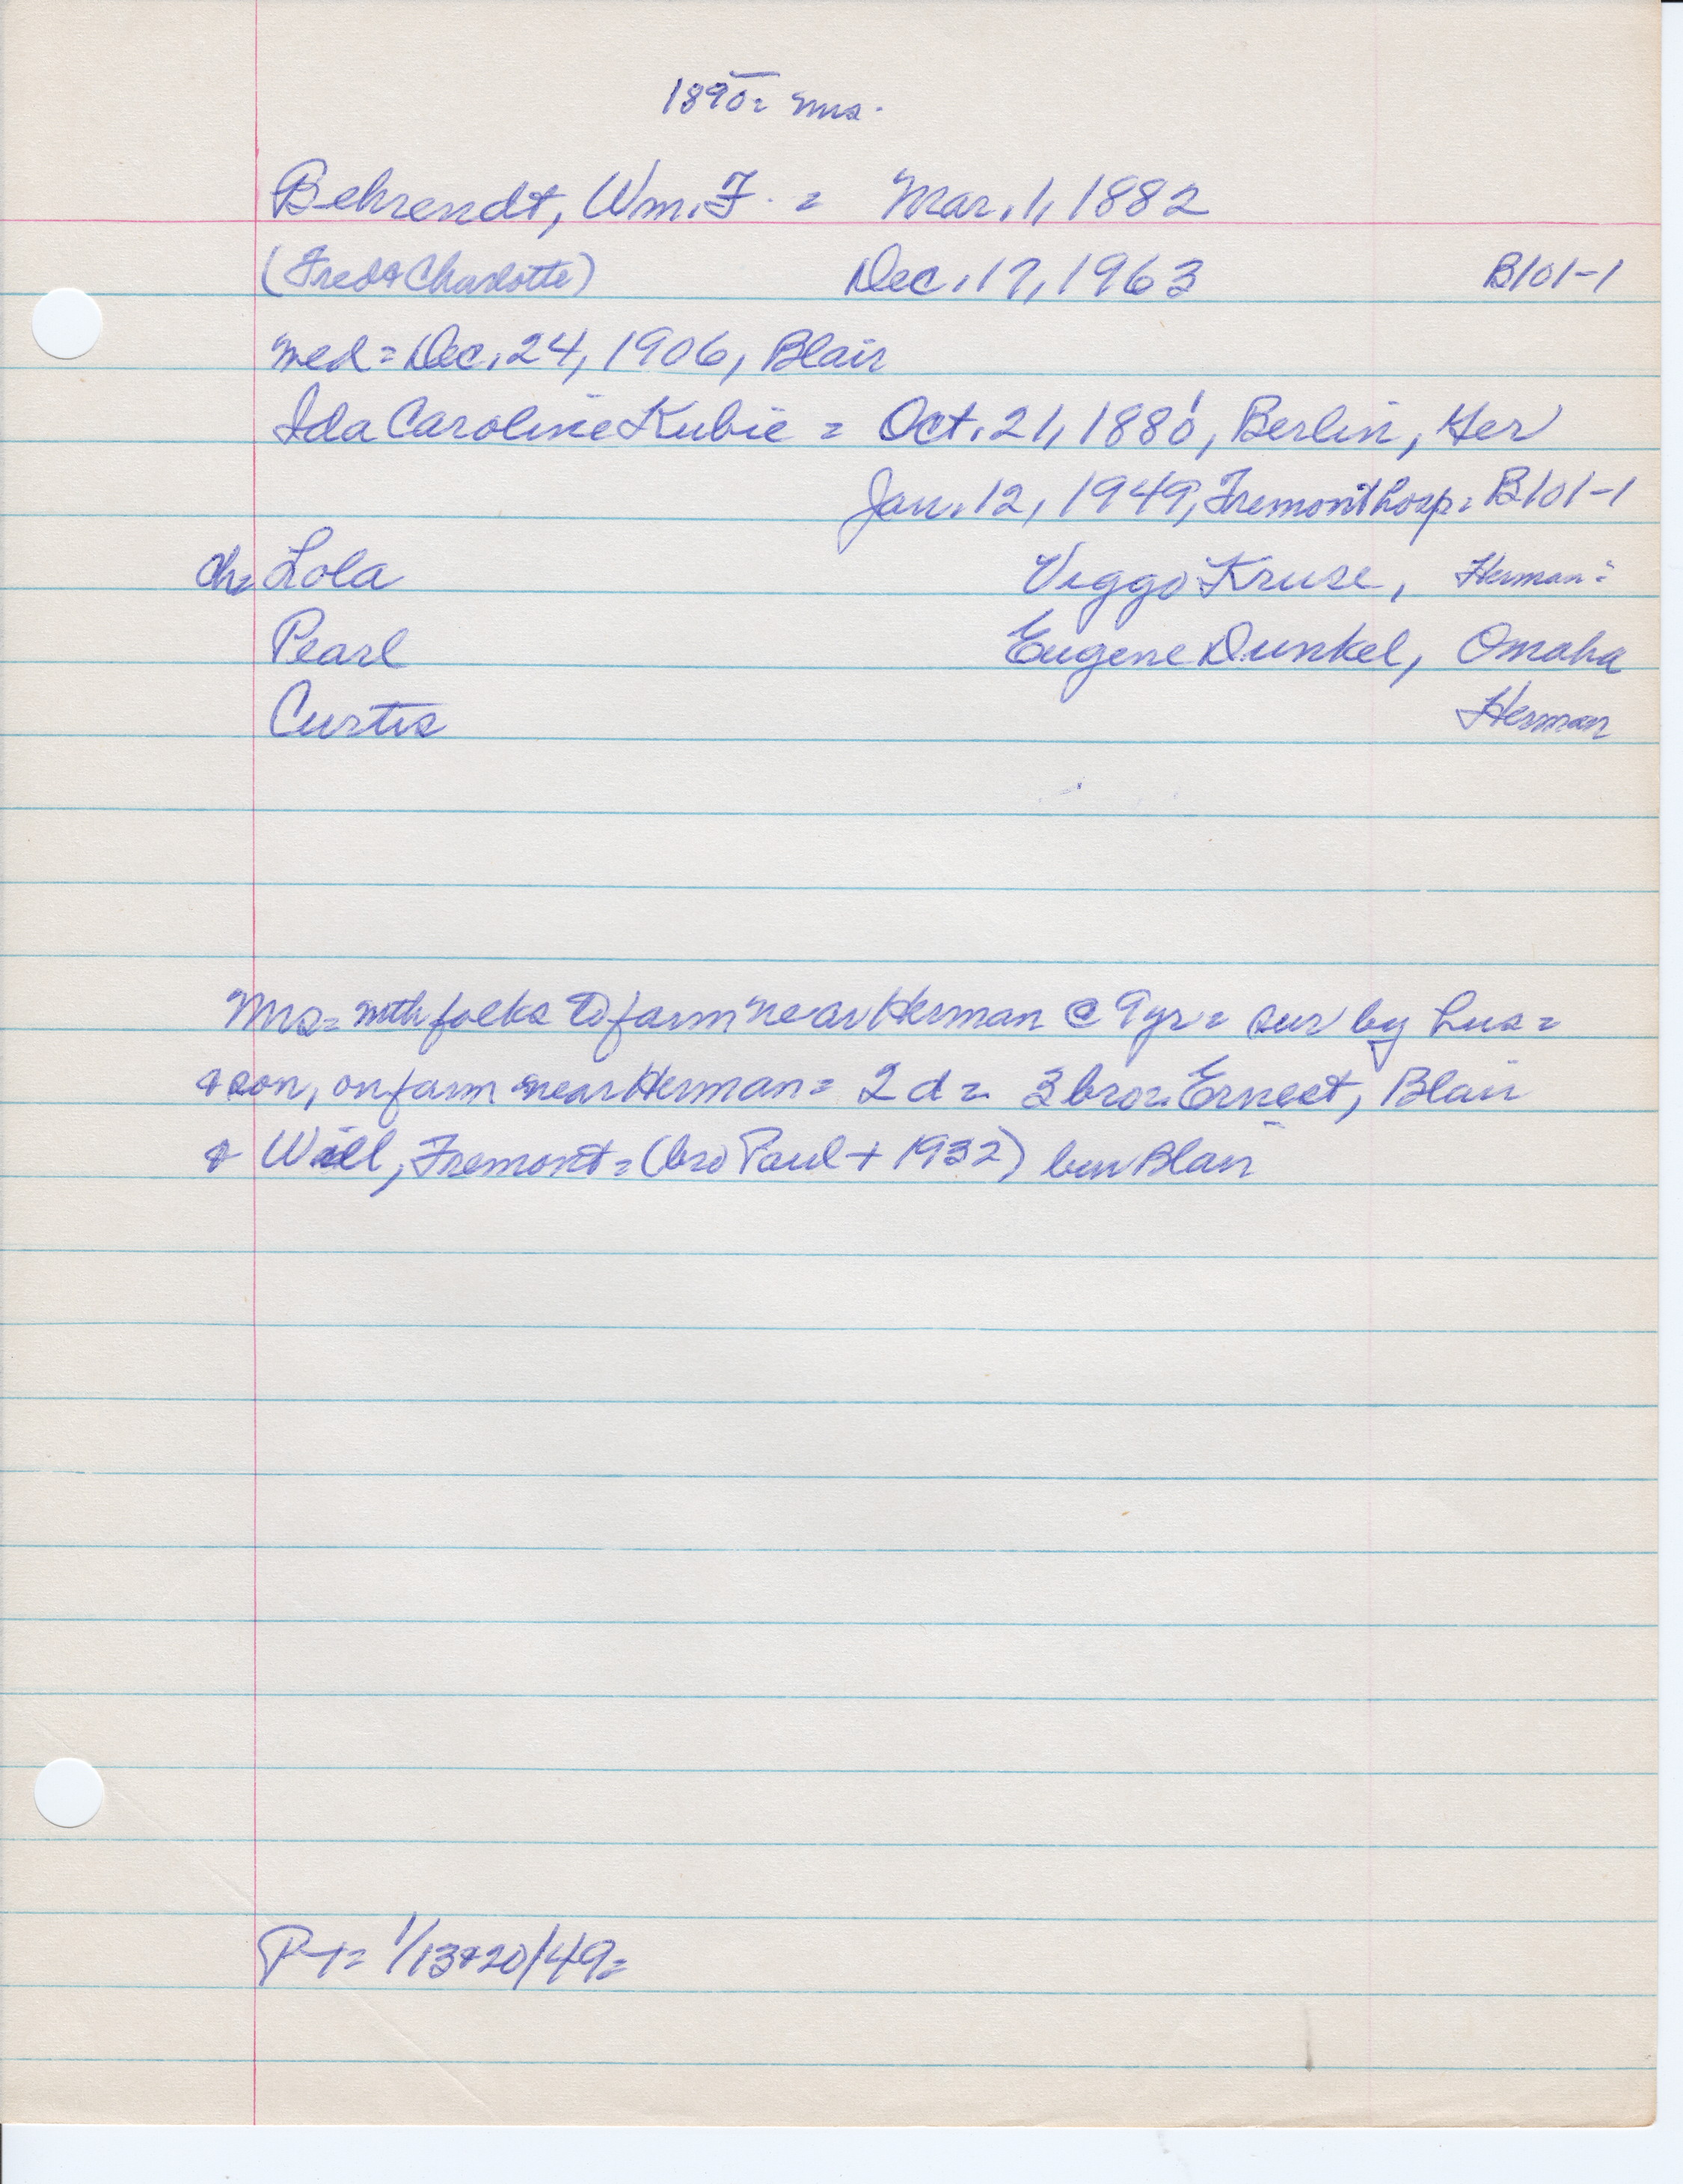 1890= Mrs.
Behrendt, Wm. F. = Mar. 1, 1882
(Fred & Charlotte) Dec. 17, 1963 B101-1
med = Dec. 24, 1906, Blair
Ida Caroline Kubie = Oct. 21, 1880, Berlin, Ger
Jan. 12, 1949, Fremont hosp = B101-1
Ch= Lola Viggo Kruse, Herman =
Pearl Eugene Dunkel, Omaha
Curtis Herman
Mrs = with folks to farm near Herman @ 9yr = sur by hus =
& son, on farm near Herman = 2 d = 3 bro = Ernest, Blair
& Will, Fremont = (bro Paul + 1932) bur Blair
P-t= 1/13&20/49=